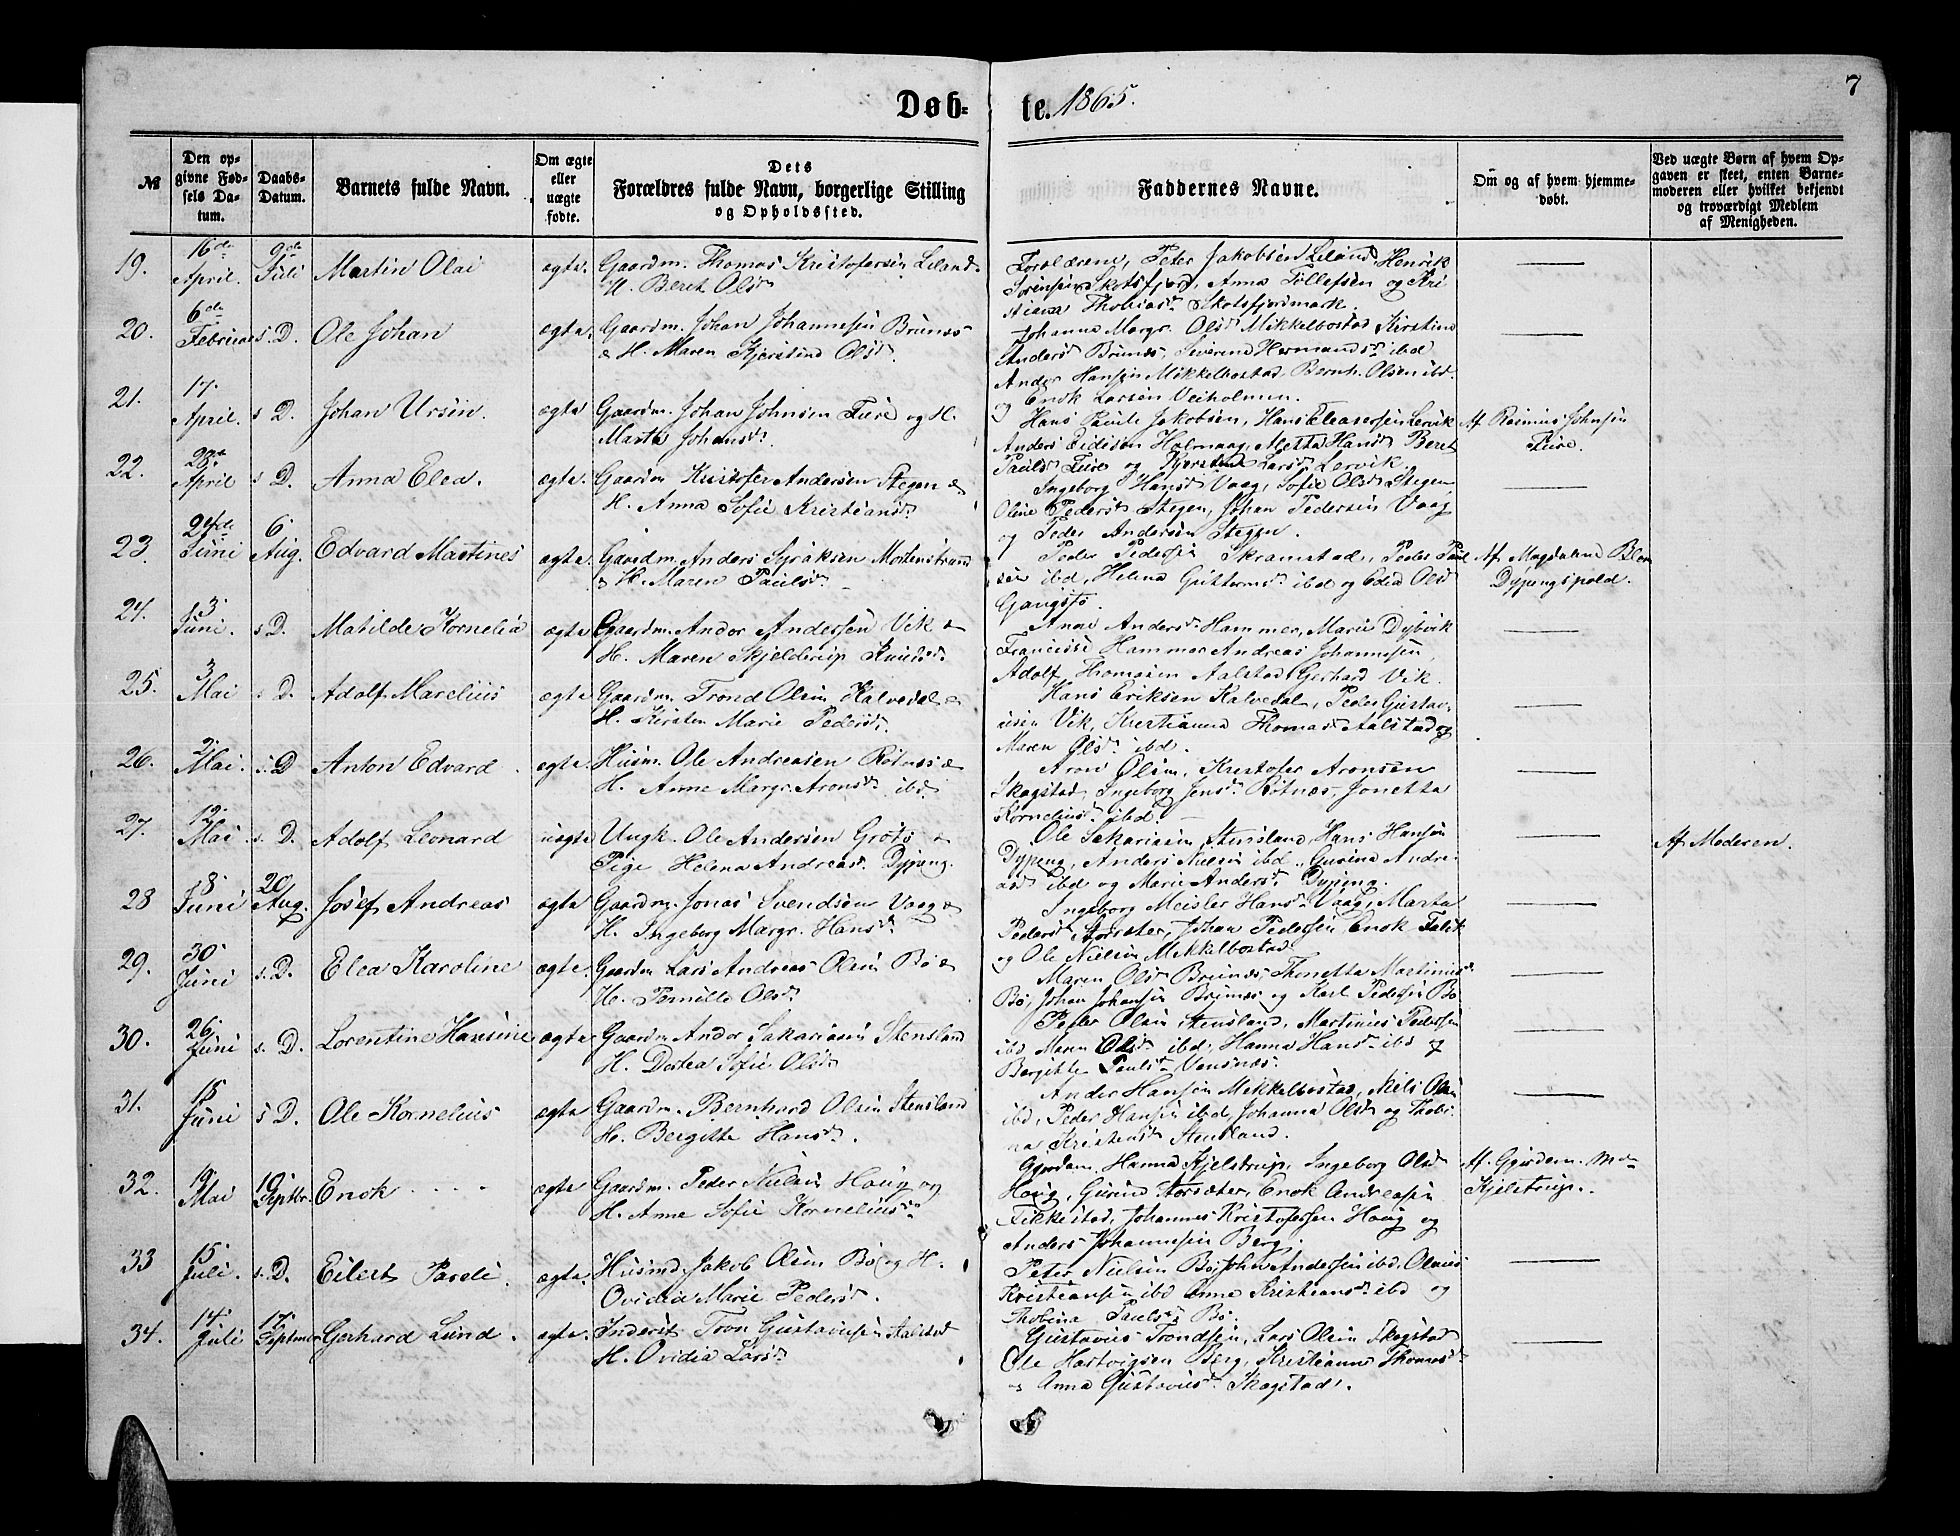 7
Døb-
te. 1865.
№
Den op-
givne Fød-
sels Da-
tum.
Daabs-
Datum.
Barnets fulde Navn.
Om ægte
eller
uægte
fødte.
Dets
Forældres fulde Navn, borgerlige Stilling
og Opholdssted.
Faddernes Navne.
Om og af hvem hjemme-
døbt.
Ved uægte Børn af hvem Op-
gaven er skeet, enten Barne-
moderen eller hvilket bekjendt
og troværdigt Medlem
af Menigheden.
19.
16de
April.
9de
Juli
Martin Olai
ægte.
Gaardm. Thomas Kristofersen Leland
H. Beret Olsd.
Forældrene, Peter Jakobsen Leland, Henrik
Sørensen Skotsfjord, Anna Tollefsen og Kri
Thobiasd. Skotsfjordmark.
20.
6de
Februar
s. D.
Ole Johan
ægte.
Gaardm. Johan Johannesen Brunæs
& H. Maren Kjerstine Olsd.
Johanna Margr. Olsd. Mikkelbostad Kirstine
Andersd. Brunæs, Severine Hermansd. ibd
Ander Hansen Mikkelbostad, Bernh. Olsen ibd.
og Enok Larsen Veiholmen.
21.
17.
April.
s D.
Johan Ursin.
ægte
Gaardm. Johan Johnsen Fure og H.
Marta Johansd.
Hans Paule Jakobsen, Hans Eleasersen Lervik
Anders Eidisen Holmaag, Metta Hansd. Beret
Paulsd. Fure og Kjersten Larsd. Lervik.
Af Rasmus Johnsen
Fure.
22.
April
s D.
Anna Elea.
ægte.
Gaardm Kristofer Andersen Stegen &
H. Anna Sofie Kristiansd.
Ingeborg Hansd. Vaag, Sofie Olsd. Stegen,
Oline Pedersd. Stegen, Johan Pedersen Vaag
og Peder Andersen Stegen.
23.
24de
Juni
6
Aug.
Edvard Martines
ægte.
Gaardm. Anders Syraksen Mortenstrand
& H. Maren Paulsd.
Peder Pedersen Skramstad, Peder Paul
sen ibd, Helena Guttormsd. ibd og Edea Olsd
Gangsø.
Af Magdalena
24.
3
Juni.
s D.
Matilde Kornelia
ægte
Gaardm. Andor Anderssen Vik &
H. Maren Skjelderup Knudsd.
Anne Andersd. Hammer, Marie Dybvik
Francisse Hammer Andreas Johannesen,
Adolf Thomasen Aalstad, Gerhard Vik.
25.
3
Mai
s D.
Adolf Marelius
ægte
Gaardm. Trond Olsen Kalvedal &
H. Kirsten Marie Pedersd.
Hans Eriksen Kalvedal, Peder Gustav-
usen Vik, Kristianna Thomasd. Aalstad og
Maren Olsd. ibd.
26.
2.
Mai.
s. D
Anton Edvard
ægte.
Husm. Ole Andreasen Rotnæs &
H. Anne Margr. Aronsd. ibd
Aron Olsen, Kristofer Aronsen
Skogstad, Ingeborg Jensd. Rotnæs, Jonetta
Korneliusd. ibd.
27.
12.
Mai
s. D.
Adolf Leonard
uægte
Ungk. Ole Andersen Grøtø &
Pige Helena Andreasd. Dypeng.
Ole Sakariasen Stensland, Hans Hansen
Dypeng, Anders Nielsen ibd., Gurina Andre-
asd ibd og Marie Andersd. Dypeng.
Af Moderen.
28
8.
Juni
20
Aug.
Josef Andreas
ægte
Gaardm. Jonas Svendsen Vaag &
H. Ingeborg Margr. Hansd.
Ingeborg Meisler Hansd. Vaag, Marta
Pedersd. Storsæter, Johan Pedersen Enok Falk
og Ole Nielsen Mikkelbostad.
29.
30
Juni
s. D.
Elea Karoline
ægte.
Gaardm Lars Andreas Olsen Bø &
H. Pernille Olsd.
Maren Olsd Brunæs, Thonetta Martinusd.
Bø, Johan Johansen Brunæs og Karl Pedersen Bø
30.
26
Juni
s. D.
Lorentine Hansine
ægte
Gaardm Andor Sakariasen Stensland
H. Dortea Sofie Olsd
Peter Olsen Stensland, Martinus Pedersen
ibd Maren Olsd. ibd, Hanna Hansd. ibd og
Bergitte Paulsd. Vensnæs.
31.
18
Juni
s D.
Ole Kornelius
ægte
Gaardm. Bernhard Olsen Stensland
H. Bergitte Hansd.
Ander Hansen Mikkelbostad, Niels Olsen
ibd, Peder Hansen ibd, Johanna Olsd og Thobi-
na Kristensd. Stensland.
32.
19
Mai
10
Septbr.
Enok
ægte
Gaardm. Peder Nielsen Haug og
H. Anne Sofie Korneliusd.
Hanna Kjelstrup, Ingeborg Olsd
Haug, Gurine Storsæter, Enok Andreasen
Fikkestad, Johannes Kristofersen Haug og
Anders Johannesen Berg.
Kjelstrup.
33
15
Juli.
s. D.
Eilert Pareli.
ægte.
Husmd. Jakob Olsen Bø og H.
Ovidia Marie Pedersd.
Peter Nielsen Bø, Johan Andersen ibd. Olaus
Kristiansen ibd Anna Kristiansd. ibd og
Thobina Paulsd. Bø.
34.
14.
Juli
17.
Septmr
Gerhard Lund.
ægte.
Inderst Tron Gustavusen Aalstad
H. Ovidia Larsd.
Gustavus Trondsen, Lars Olsen Skogstad
Ole Hartvigsen Berg, Kristianne Thomasd.
& Anna Gustavusd. Skogstad.